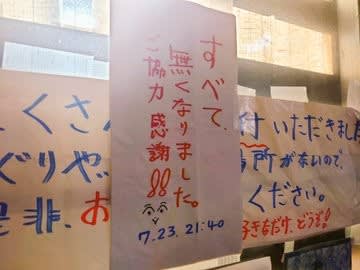 すべて、
無くなりました。
ご協力感謝!!
7.23. 21:40
くさん
ぐりや
是非、お
付 いただきました
場所がないので、
ください。
好きなだけ、どうぞ!